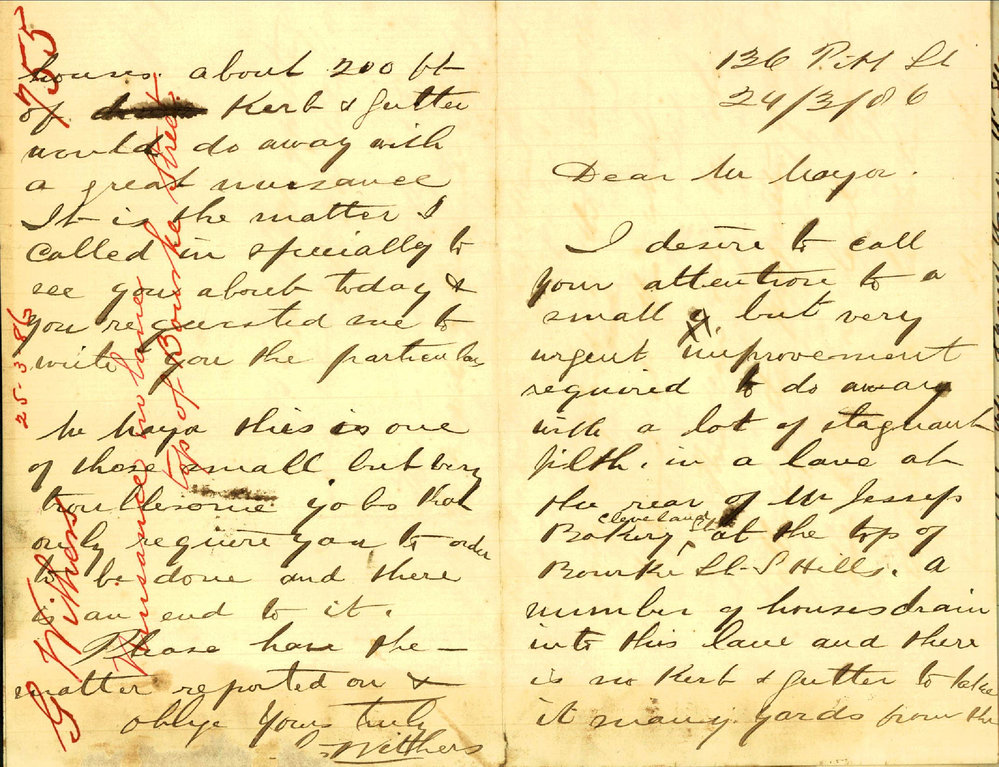 136 Pitt St
24/3/86
Dear Mr Mayor.
I desire to call
your attention to a
small but very
urgent improvement
required to do away
with a lot of stagnant
filth. in a lane at
the rear of Mr Jessep
Cleveland St
Bakery, at the top of
Bourke St S Hills. a
number of houses drain
into this lane and there
is no Kerb & gutter to take
it many yards from the
houses. about 200 ft
of Kerb & gutter
would do away with
a great nuisance
It is the matter I
called in specially to
see you about today &
you requested me to
write you the particulars
Mr Mayor this is one
of those small but very
troublesome jobs that
only require you to order
to be done and there
is an end to it.
Please have the
matter reported on &
oblige Yours truly
G Withers
755
25-3-86
G Withers
Nuisance in lane
top of Bourke Street